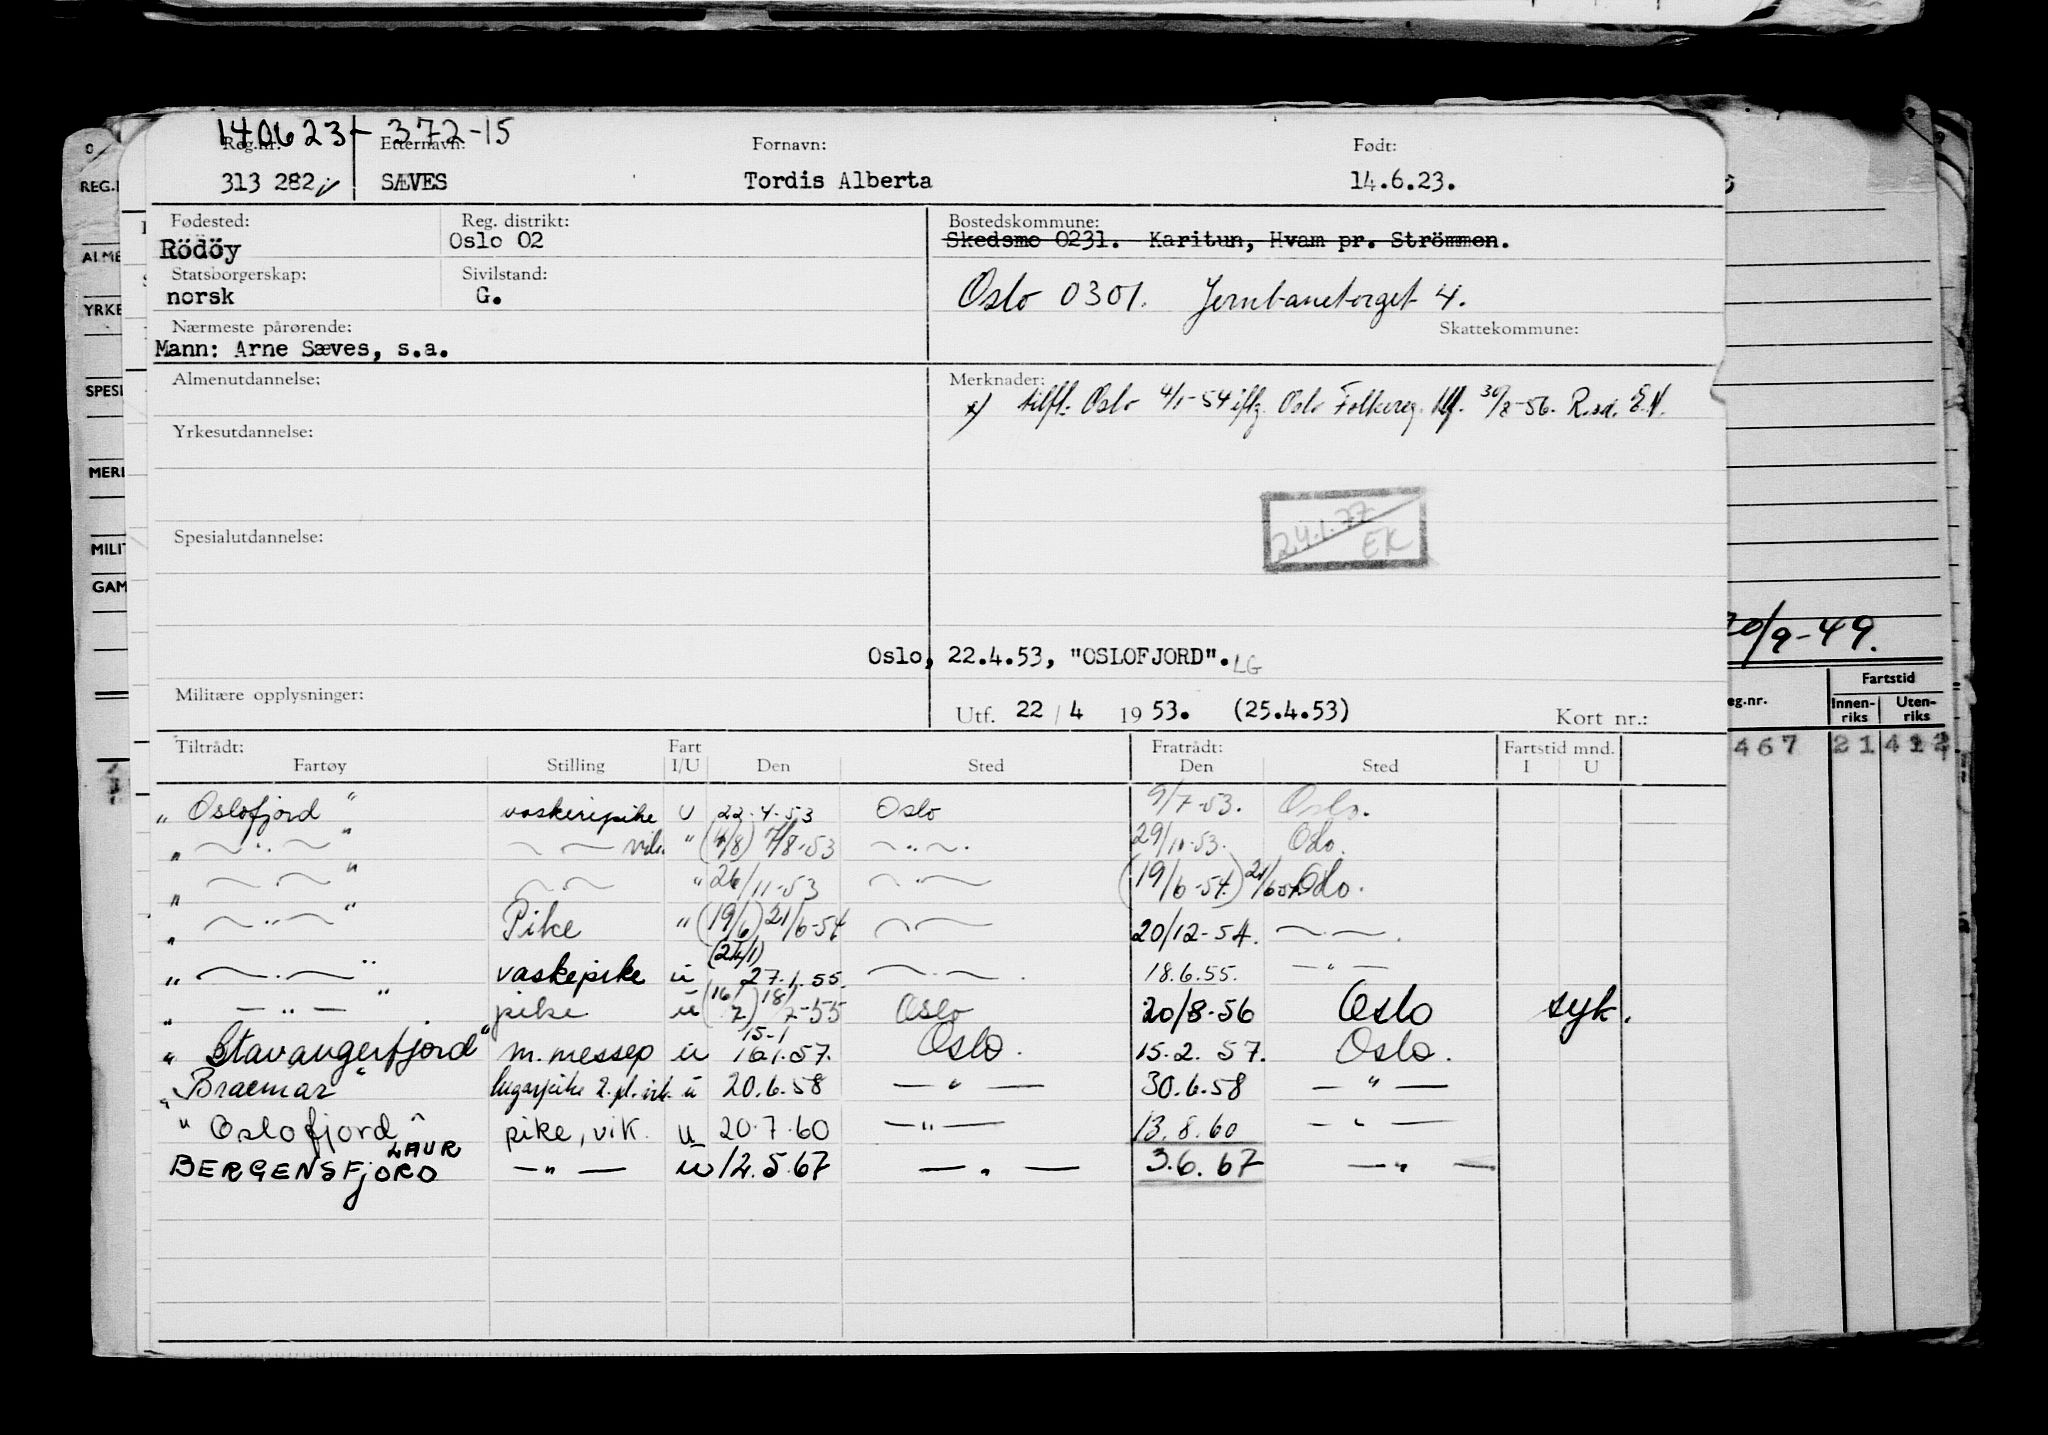 140623-372-15
Reg.nr.: Etternavn: Fornavn: Født:
313 282 SÆVES Tordis Alberta 14.6.23.
Fødested: Reg. distrikt: Bostedskommune:
Rödöy Oslo 02 Skedsmo 0231. Karitun, Hvam pr. Strömmen.
Statsborgerskap: Sivilstand:
norsk G. Oslo 0301. Jernbanetorget 4.
Nærmeste pårørende: Skattekommune:
Mann: Arne Sæves, s.a.
Almenutdannelse: Merknader:
x) tilfl. Oslo 4/1-54 iflg. Oslo Folkereg. 30/8-56. R.sd. E.N.
Yrkesutdannelse:
24.1.77 EK
Spesialutdannelse:
Oslo, 22.4.53, "OSLOFJORD". LG
Militære opplysninger: Utf. 22 / 4 19 53. (25.4.53) Kort nr.:
Tiltrådt: Fart Fratrådt: Fartstid mnd.
Fartøy Stilling I/U Den Sted Den Sted I U
"Oslofjord" vaskeripike U 22.4.53 Oslo 9/7-53. Oslo.
" — " — " — — vik. " (4/8) 7/8-53 — " — 29/11-53. Oslo.
" — " — " — " — " 26/11-53 — " — (19/6-54.) 21/6 54 Oslo.
" — " — " Pike " (19/6) 21/6-54 — " — 20/12-54. — " —
" — " — " vaskepike u (24/1) 27.1.55. — " — 18.6.55. — " —
" — " — " pike u (16/7) 18/7-55 Oslo 20/8-56 Oslo syk.
"Stavangerfjord" m.messep u 15-1 16.1.57. Oslo. 15.2.57. Oslo.
"Braemar" lugarpike 2.pl. vik. u 20.6.58 — " — 30.6.58 — " —
"Oslofjord" pike, vik. u 20.7.60 — " — 13.8.60 — " —
LAUR
BERGENSFJORD — " — u 12.5.67 — " — 3.6.67 — " —
REG.
ALME
YRKE
SPESI
MERI
MILIT
GAM
/9-49.
Fartstid
eg.nr. Innen-riks Uten-riks
467 21 412